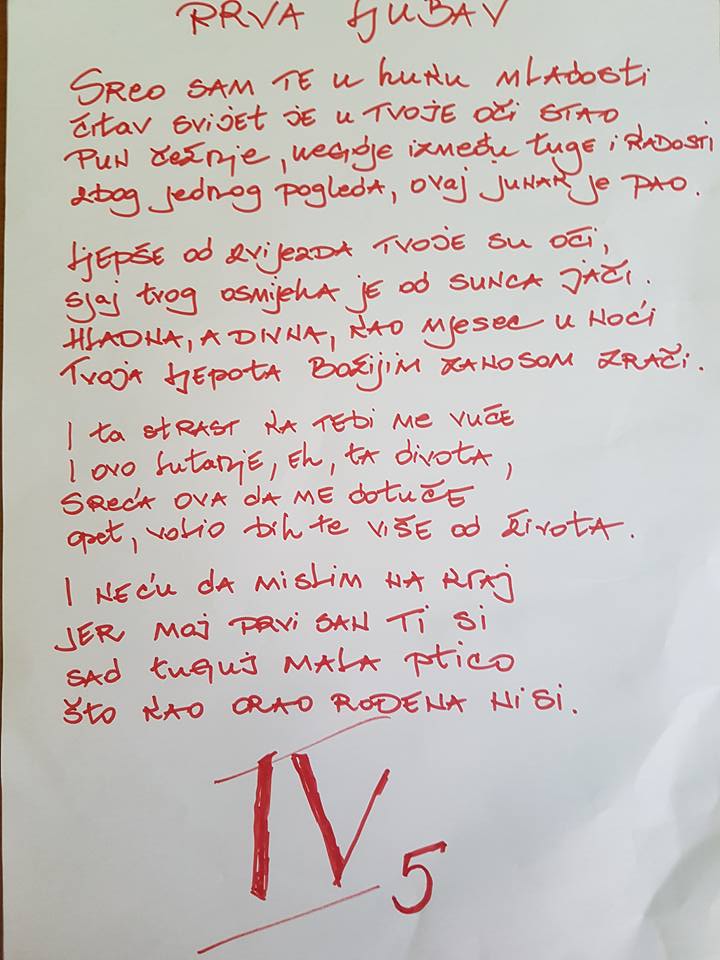 PRVA LJUBAV
SREO SAM TE U kutku MLADOSTI
čitav svijet je u TVOJE OČI STAO
PUN čežnje, negdje između tuge i RADOSTI
zbog jednog pogleda, ovaj junak je PAO.
LJEPŠE od zvijezda TVOJE SU OČI,
sjaj tvog osmijeha je od SUNCA JAČI.
HLADNA, A DIVNA, KAO mjesec u noći
Tvoja ljepota Božijim ZANOSOM ZRAČI.
I ta STRAST KA TEBI ME VUČE
I ovo lutanje, Eh, TA divota,
SREĆA OVA da ME dotuče
opet, volio bih te VIŠE od života.
I NEĆU da MISLIM NA KRAJ
JER MOJ PRVI SAN TI SI
SAD tuguj MALA ptico
ŠTO KAO ORAO ROĐENA NISI.
IV5